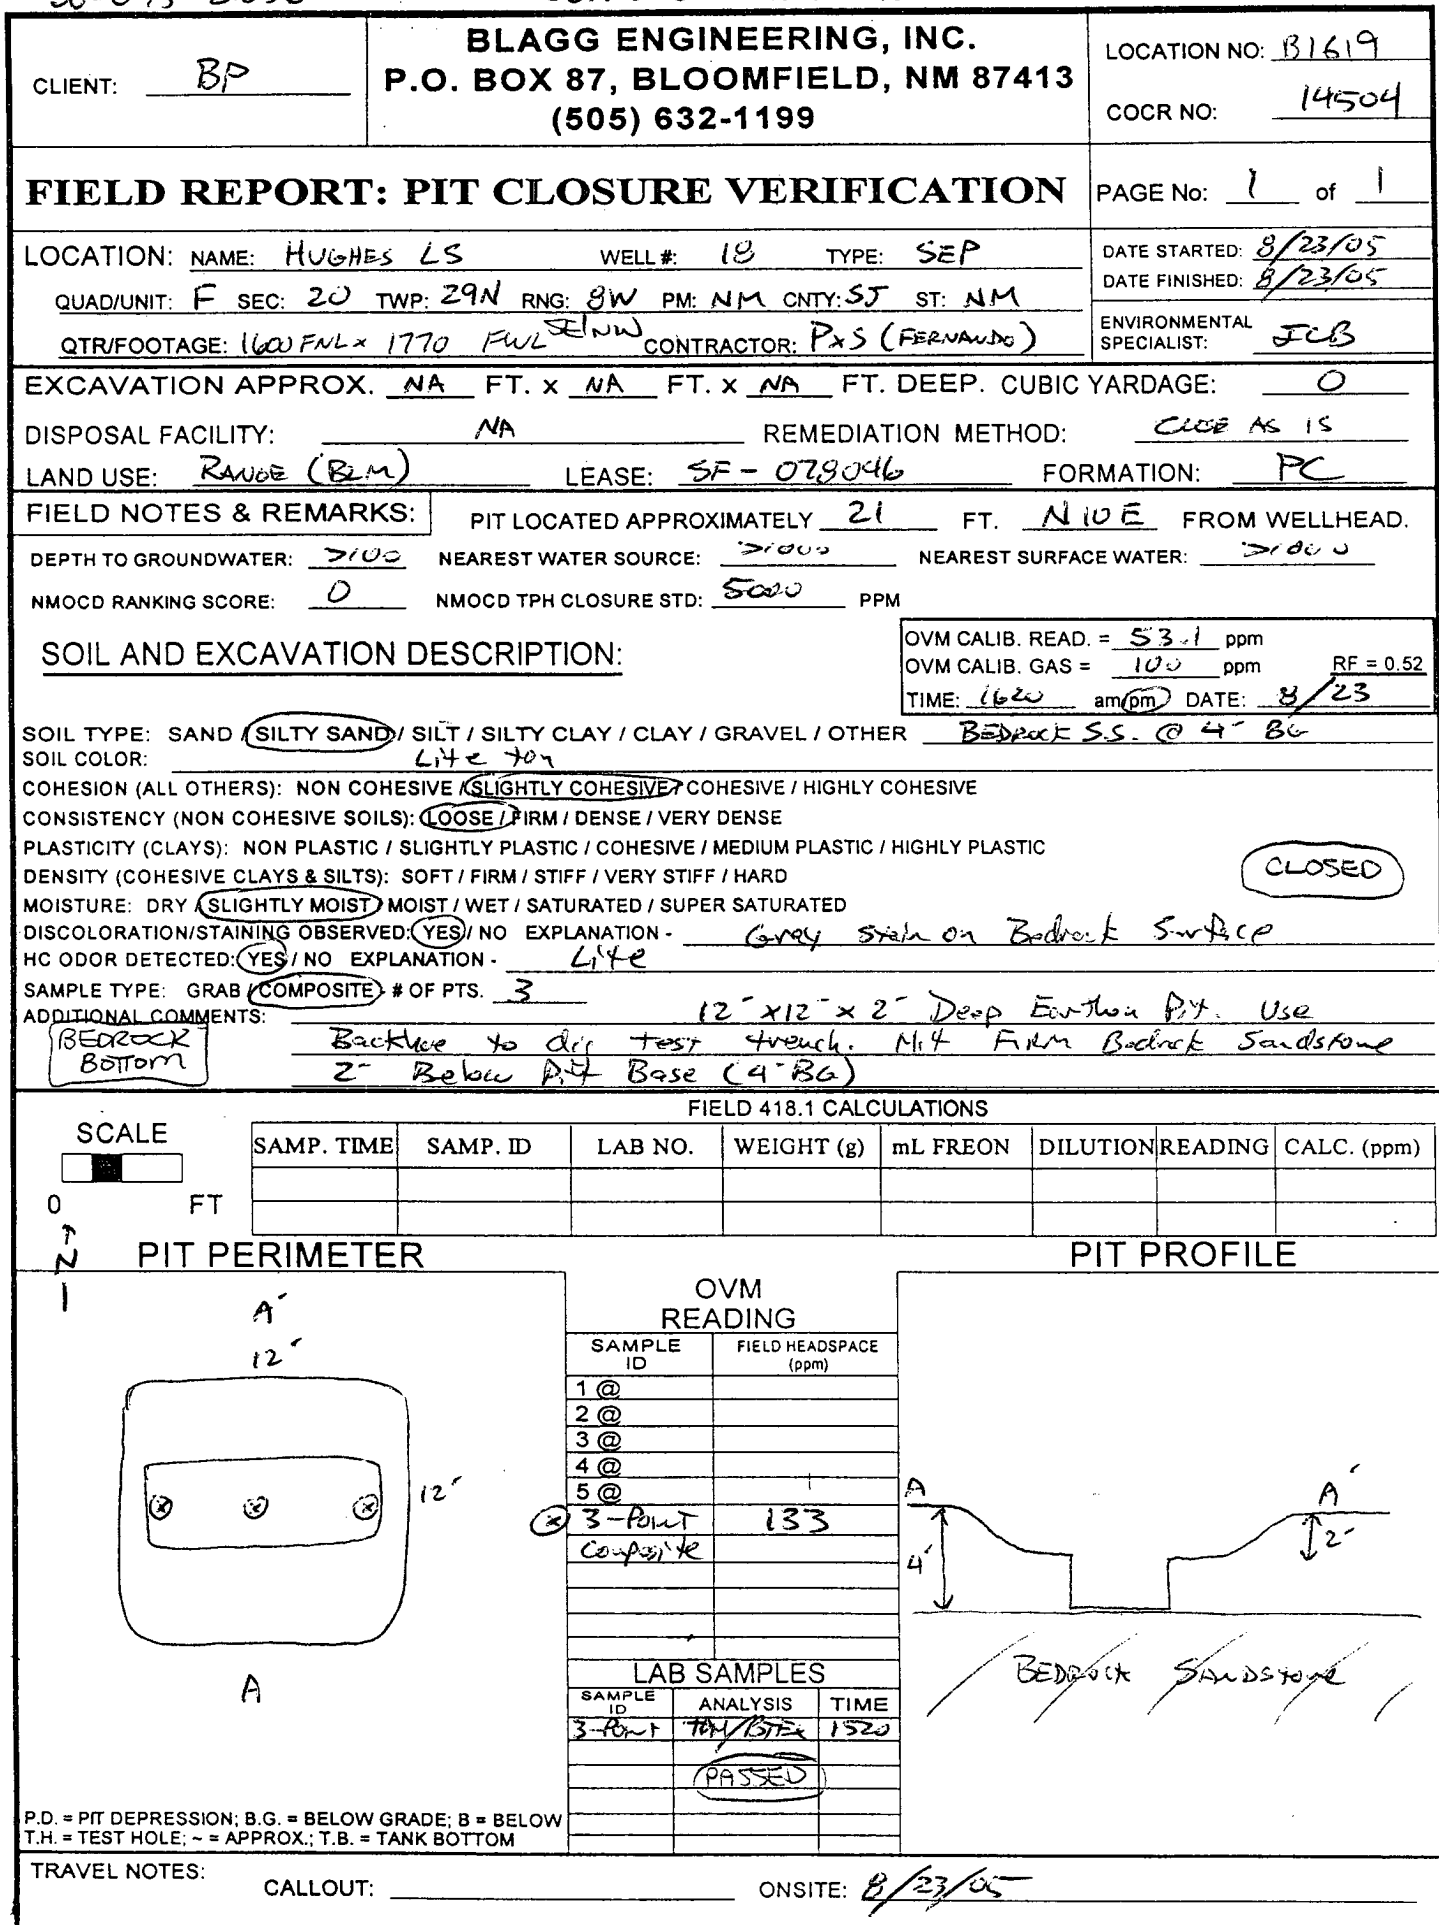 BLAGG ENGINEERING, INC.
P.O. BOX 87, BLOOMFIELD, NM 87413
(505) 632-1199
CLIENT: BP
LOCATION NO: B1619
COCR NO: 14504
FIELD REPORT: PIT CLOSURE VERIFICATION
PAGE No: 1 of 1
LOCATION: NAME: HUGHES LS WELL #: 18 TYPE: SEP
QUAD/UNIT: F SEC: 20 TWP: 29N RNG: 8W PM: NM CNTY: SJ ST: NM
QTR/FOOTAGE: 1600 FNL x 1770 FWL SE/NW CONTRACTOR: P x S (FERNANDO)
DATE STARTED: 8/23/05
DATE FINISHED: 8/23/05
ENVIRONMENTAL
SPECIALIST: JCB
EXCAVATION APPROX. NA FT. x NA FT. x NA FT. DEEP. CUBIC YARDAGE: 0
DISPOSAL FACILITY: NA REMEDIATION METHOD: CLOSE AS IS
LAND USE: RANGE (BLM) LEASE: SF - 078046 FORMATION: PC
FIELD NOTES & REMARKS: PIT LOCATED APPROXIMATELY 21 FT. N10E FROM WELLHEAD.
DEPTH TO GROUNDWATER: >100 NEAREST WATER SOURCE: >1000 NEAREST SURFACE WATER: >1000
NMOCD RANKING SCORE: 0 NMOCD TPH CLOSURE STD: 5000 PPM
SOIL AND EXCAVATION DESCRIPTION:
OVM CALIB. READ. = 53.1 ppm
OVM CALIB. GAS = 100 ppm RF = 0.52
TIME: 1620 am/pm DATE: 8/23
SOIL TYPE: SAND / SILTY SAND / SILT / SILTY CLAY / CLAY / GRAVEL / OTHER BEDROCK S.S. @ 4' BG
SOIL COLOR: Lite tan
COHESION (ALL OTHERS): NON COHESIVE / SLIGHTLY COHESIVE / COHESIVE / HIGHLY COHESIVE
CONSISTENCY (NON COHESIVE SOILS): LOOSE / FIRM / DENSE / VERY DENSE
PLASTICITY (CLAYS): NON PLASTIC / SLIGHTLY PLASTIC / COHESIVE / MEDIUM PLASTIC / HIGHLY PLASTIC
DENSITY (COHESIVE CLAYS & SILTS): SOFT / FIRM / STIFF / VERY STIFF / HARD
CLOSED
MOISTURE: DRY / SLIGHTLY MOIST / MOIST / WET / SATURATED / SUPER SATURATED
DISCOLORATION/STAINING OBSERVED: YES / NO EXPLANATION - Gray stain on Bedrock Surface
HC ODOR DETECTED: YES / NO EXPLANATION - Lite
SAMPLE TYPE: GRAB / COMPOSITE - # OF PTS. 3
ADDITIONAL COMMENTS: 12' x 12' x 2' Deep Earthen Pit. Use
BEDROCK
BOTTOM
Backhoe to dig test trench. Hit FIRM Bedrock Sandstone
2' Below Pit Base (4' BG)
FIELD 418.1 CALCULATIONS
SCALE
0 FT
SAMP. TIME SAMP. ID LAB NO. WEIGHT (g) mL FREON DILUTION READING CALC. (ppm)
N
PIT PERIMETER
A'
12'
12'
A
OVM
READING
SAMPLE
ID
FIELD HEADSPACE
(ppm)
1 @
2 @
3 @
4 @
5 @
3-Point 133
Composite
LAB SAMPLES
SAMPLE
ID
ANALYSIS TIME
3-Point TPH/BTEX 1520
PASSED
PIT PROFILE
A A'
4' 2'
BEDROCK SANDSTONE
P.D. = PIT DEPRESSION; B.G. = BELOW GRADE; B = BELOW
T.H. = TEST HOLE; ~ = APPROX.; T.B. = TANK BOTTOM
TRAVEL NOTES:
CALLOUT: ONSITE: 8/23/05